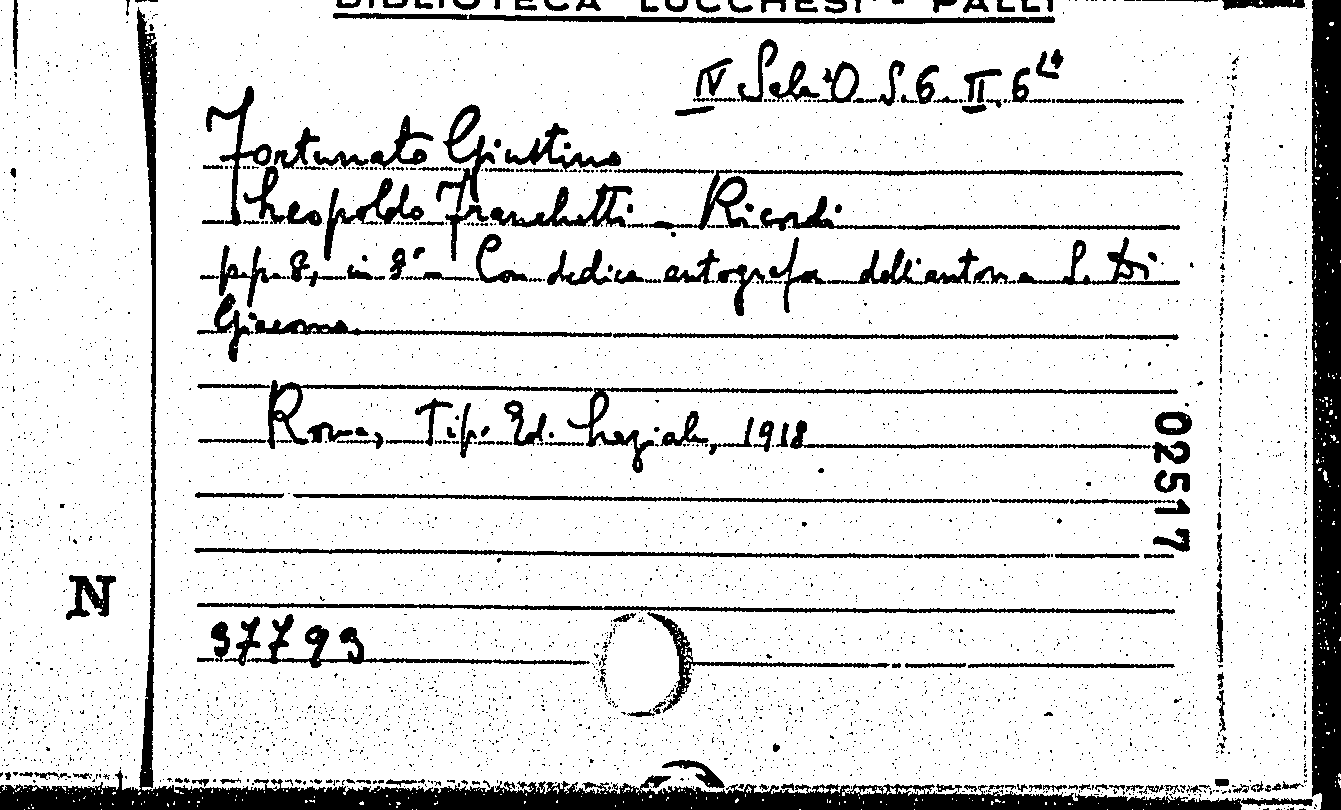 BIBLIOTECA LUCCHESI - PALLI
IV Sala O S.6. II. 6
Fortunato Giustino
Theopoldo Franchetti - Ricordi
pp. 8, in 8º - Con dedica autografa dell'autor a S. Di
Giacomo.
Roma, Tip. Ed. Laziale, 1918
02517
N
37793